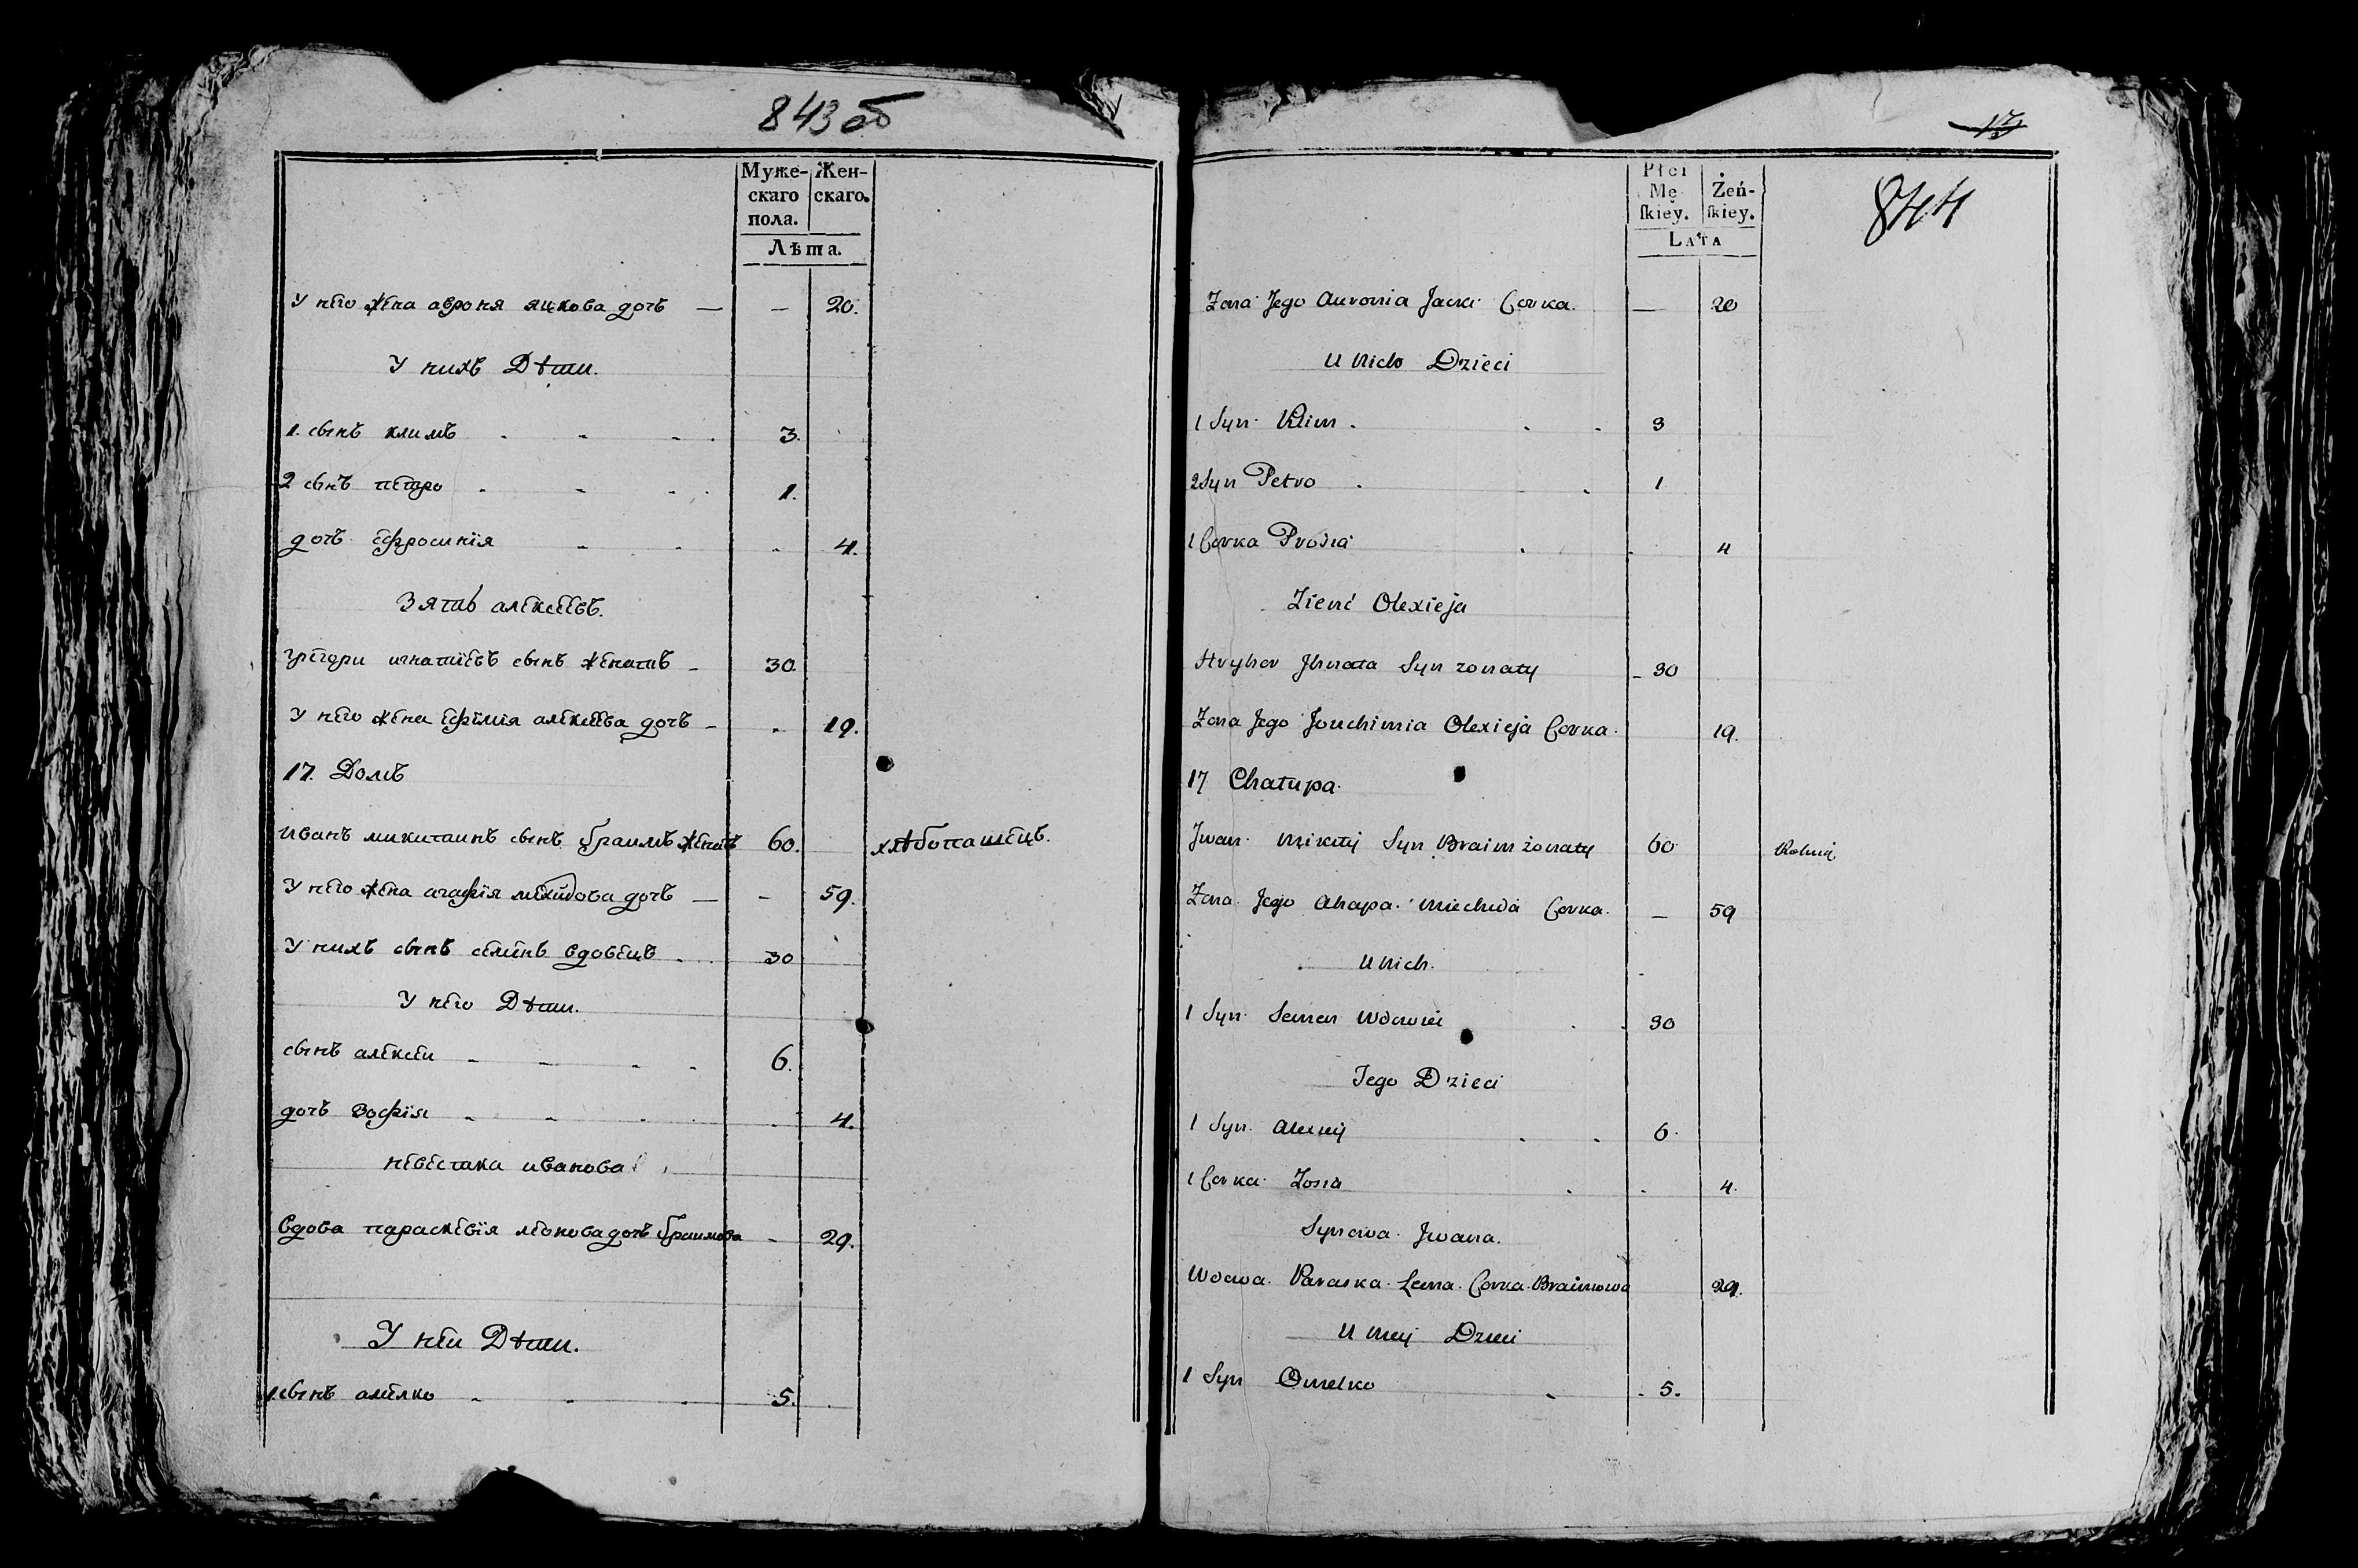 843 об
Муже- Жен-
скаго скаго.
пола.
Лѣта.
У него жена авроня яцкова дочъ — — 20.
У нихъ Дѣти.
1. сынъ климъ 3.
2 сынъ петро 1.
дочъ ефросинія 4.
Зять алексеевъ.
григори игнатиевъ сынъ женатъ 30.
У него жена ефимія алексеева дочъ 19.
17. Домъ
иванъ микитинъ сынъ браимъ женатъ 60. хлѣбопашецъ.
У него жена агафія дочъ — - 59.
У нихъ сынъ семенъ вдовецъ 30
У него Дѣти.
сынъ алексеи 6.
дочъ зофія 4.
невестка иванова
вдова параскевія леонова дочъ браимова - 29.
У неи Дѣти.
1. сынъ амелко 5.
17
844
Płci
Mę Żeń-
ſkiey. ſkiey.
Lata
Zona Jego Auronia Jacka Corka. — 20
U Nich Dzieci
1 Syn Klim 3
2 Syn Petro 1
1 Corka Prosia 4
Zienć Olexieja
Hryhor Jhnata Syn zonaty 30
Zona Jego Jouchimia Olexieja Corka 19.
17 Chatupa
Jwan Mikity Syn Braim zonaty 60 Rolnik
Zona Jego Ahapa Corka — 59
U Nich
1 Syn Semen Wdowiec 30
Jego Dzieci
1 Syn Alexiey 6
1 Corka Zosia 4.
Synowa Jwana.
Wdowa Paraska Leona Corka Braimowa 29.
U Niej Dzieci
1 Syn Omelko 5.